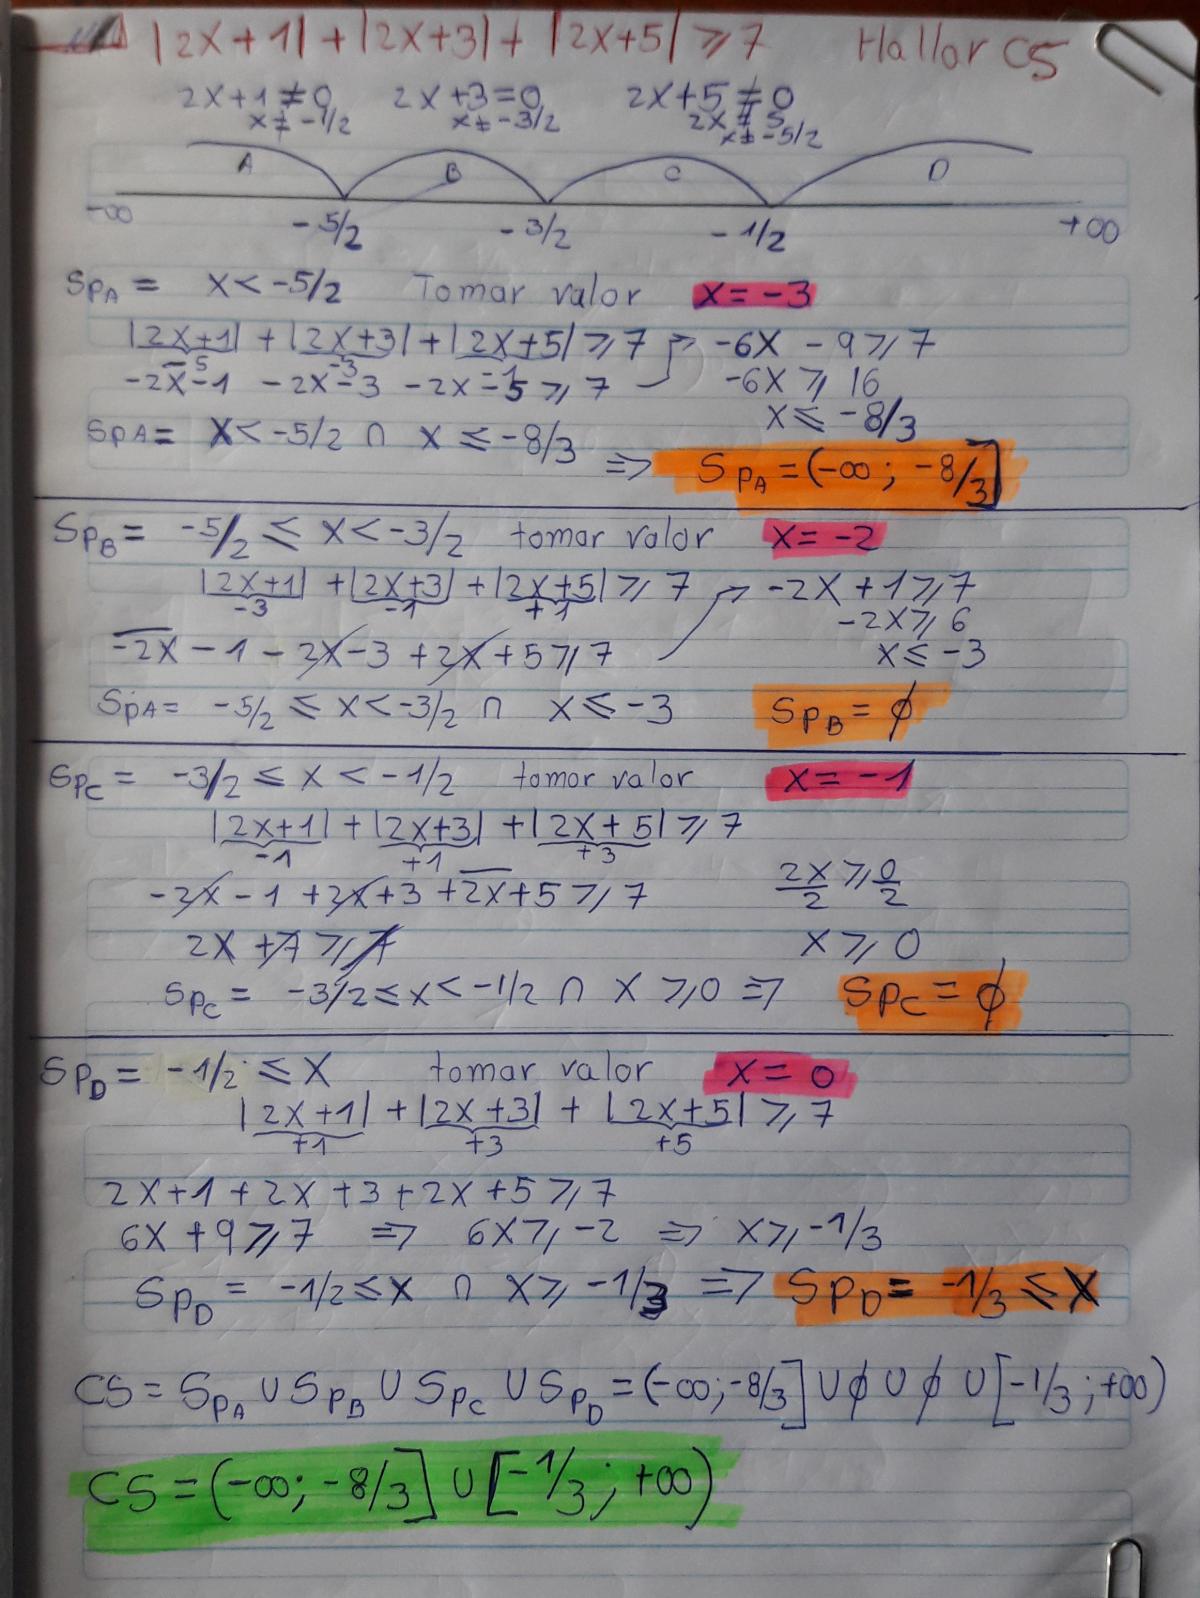 |2X+1| + |2X+3| + |2X+5| ≥ 7 Hallar CS
2X+1≠0 2X+3=0 2X+5≠0
x≠-1/2 x≠-3/2 2X≠5
x≠-5/2
A B C D
-∞ -5/2 -3/2 -1/2 +∞
SpA = X<-5/2 Tomar valor X=-3
|2X+1| + |2X+3| + |2X+5| ≥ 7 → -6X - 9 ≥ 7
-5 -3 -1
-2X-1 -2X-3 -2X-5 ≥ 7 -6X ≥ 16
X ≤ -8/3
SpA = X<-5/2 ∩ X ≤ -8/3 ⇒ SpA = (-∞; -8/3]
SpB = -5/2 ≤ X < -3/2 tomar valor X=-2
|2X+1| + |2X+3| + |2X+5| ≥ 7 → -2X+1 ≥ 7
-3 -1 +1 -2X ≥ 6
-2X - 1 - 2X-3 + 2X + 5 ≥ 7 X ≤ -3
SpA = -5/2 ≤ X < -3/2 ∩ X ≤ -3 SpB = ϕ
SpC = -3/2 ≤ X < -1/2 tomar valor X=-1
|2X+1| + |2X+3| + |2X+5| ≥ 7
-1 +1 +3
-2X - 1 + 2X + 3 + 2X + 5 ≥ 7 2X/2 ≥ 0/2
2X + 7 ≥ 7 X ≥ 0
SpC = -3/2 ≤ X < -1/2 ∩ X ≥ 0 ⇒ SpC = ϕ
SpD = -1/2 ≤ X tomar valor X = 0
|2X+1| + |2X+3| + |2X+5| ≥ 7
+1 +3 +5
2X+1 + 2X + 3 + 2X + 5 ≥ 7
6X + 9 ≥ 7 ⇒ 6X ≥ -2 ⇒ X ≥ -1/3
SpD = -1/2 ≤ X ∩ X ≥ -1/3 ⇒ SpD = -1/3 ≤ X
CS = SpA ∪ SpB ∪ SpC ∪ SpD = (-∞; -8/3] ∪ ϕ ∪ ϕ ∪ [-1/3; +∞)
CS = (-∞; -8/3] ∪ [-1/3; +∞)